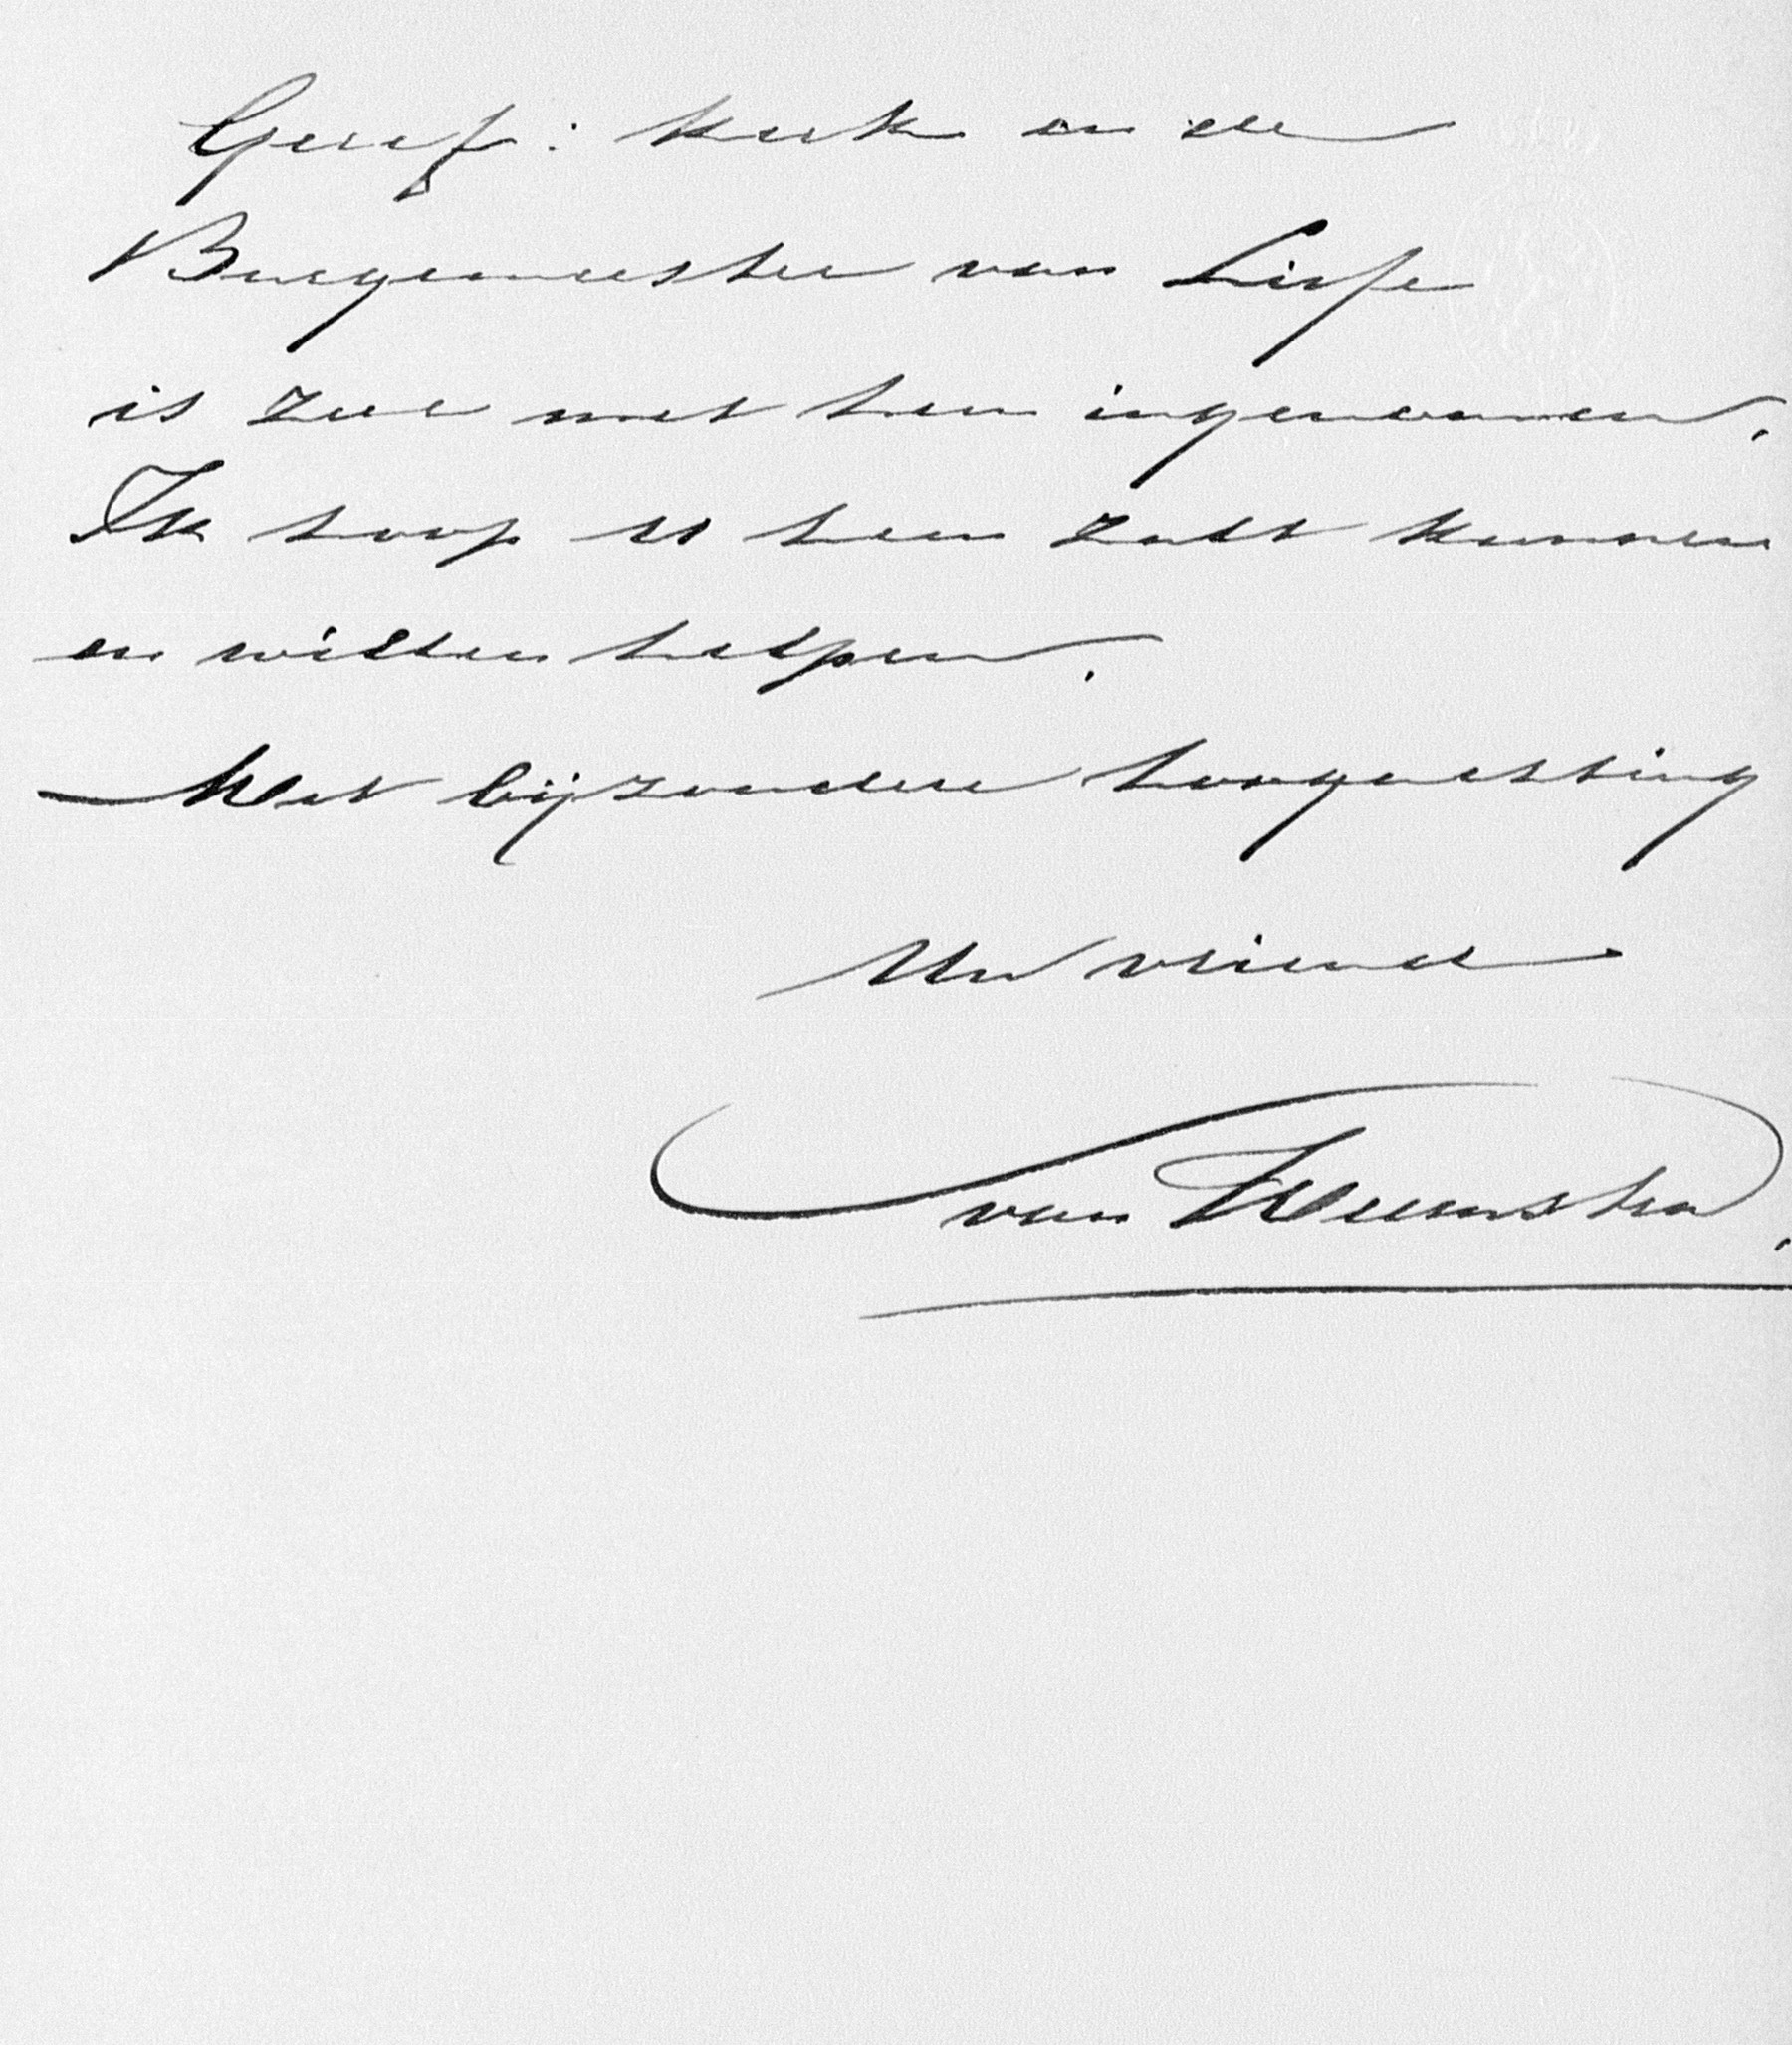 Geref: kerk en de
Burgemeester van Lisse
is zeer met hem ingenomen.
Ik hoop U hem zult kunnen
en willen helpen.
Met bijzondere hoogachting
Uw vriend
van